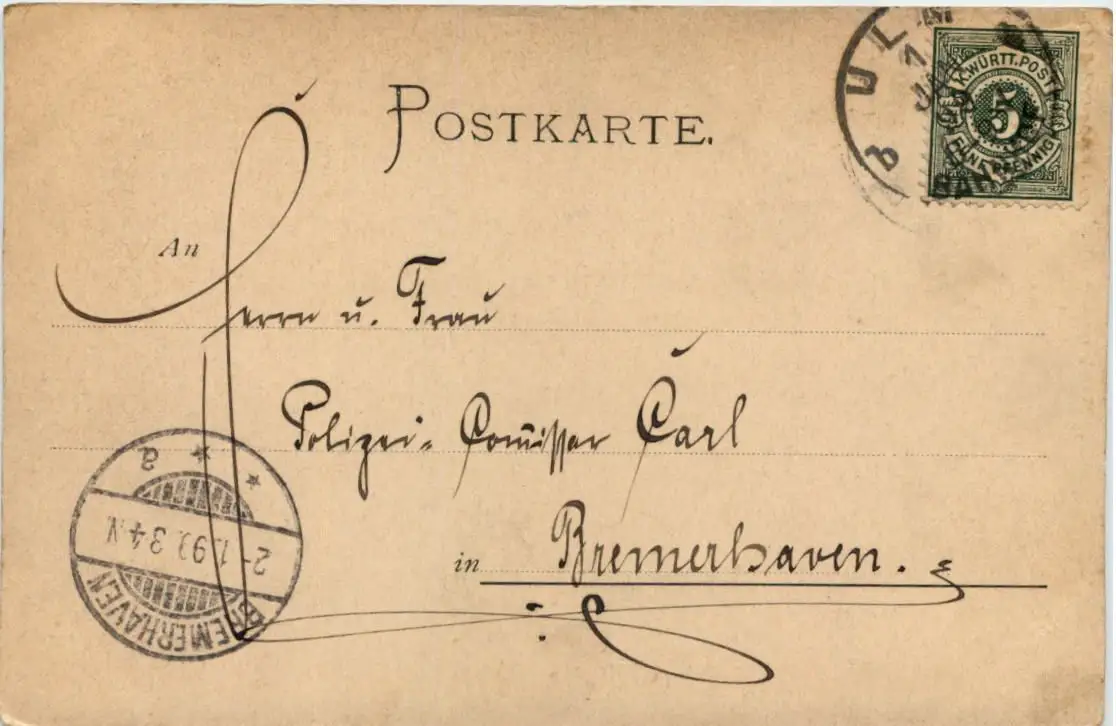 POSTKARTE.
K. WÜRTT. POST
5
FÜNF PFENNIG
ULM
1
JAN
BAH
An
Herrn u. Frau
Polizei-Com̄issar Carl
in Bremerhaven.
BREMERHAVEN
2-1.99. 3-4 N.
* * a